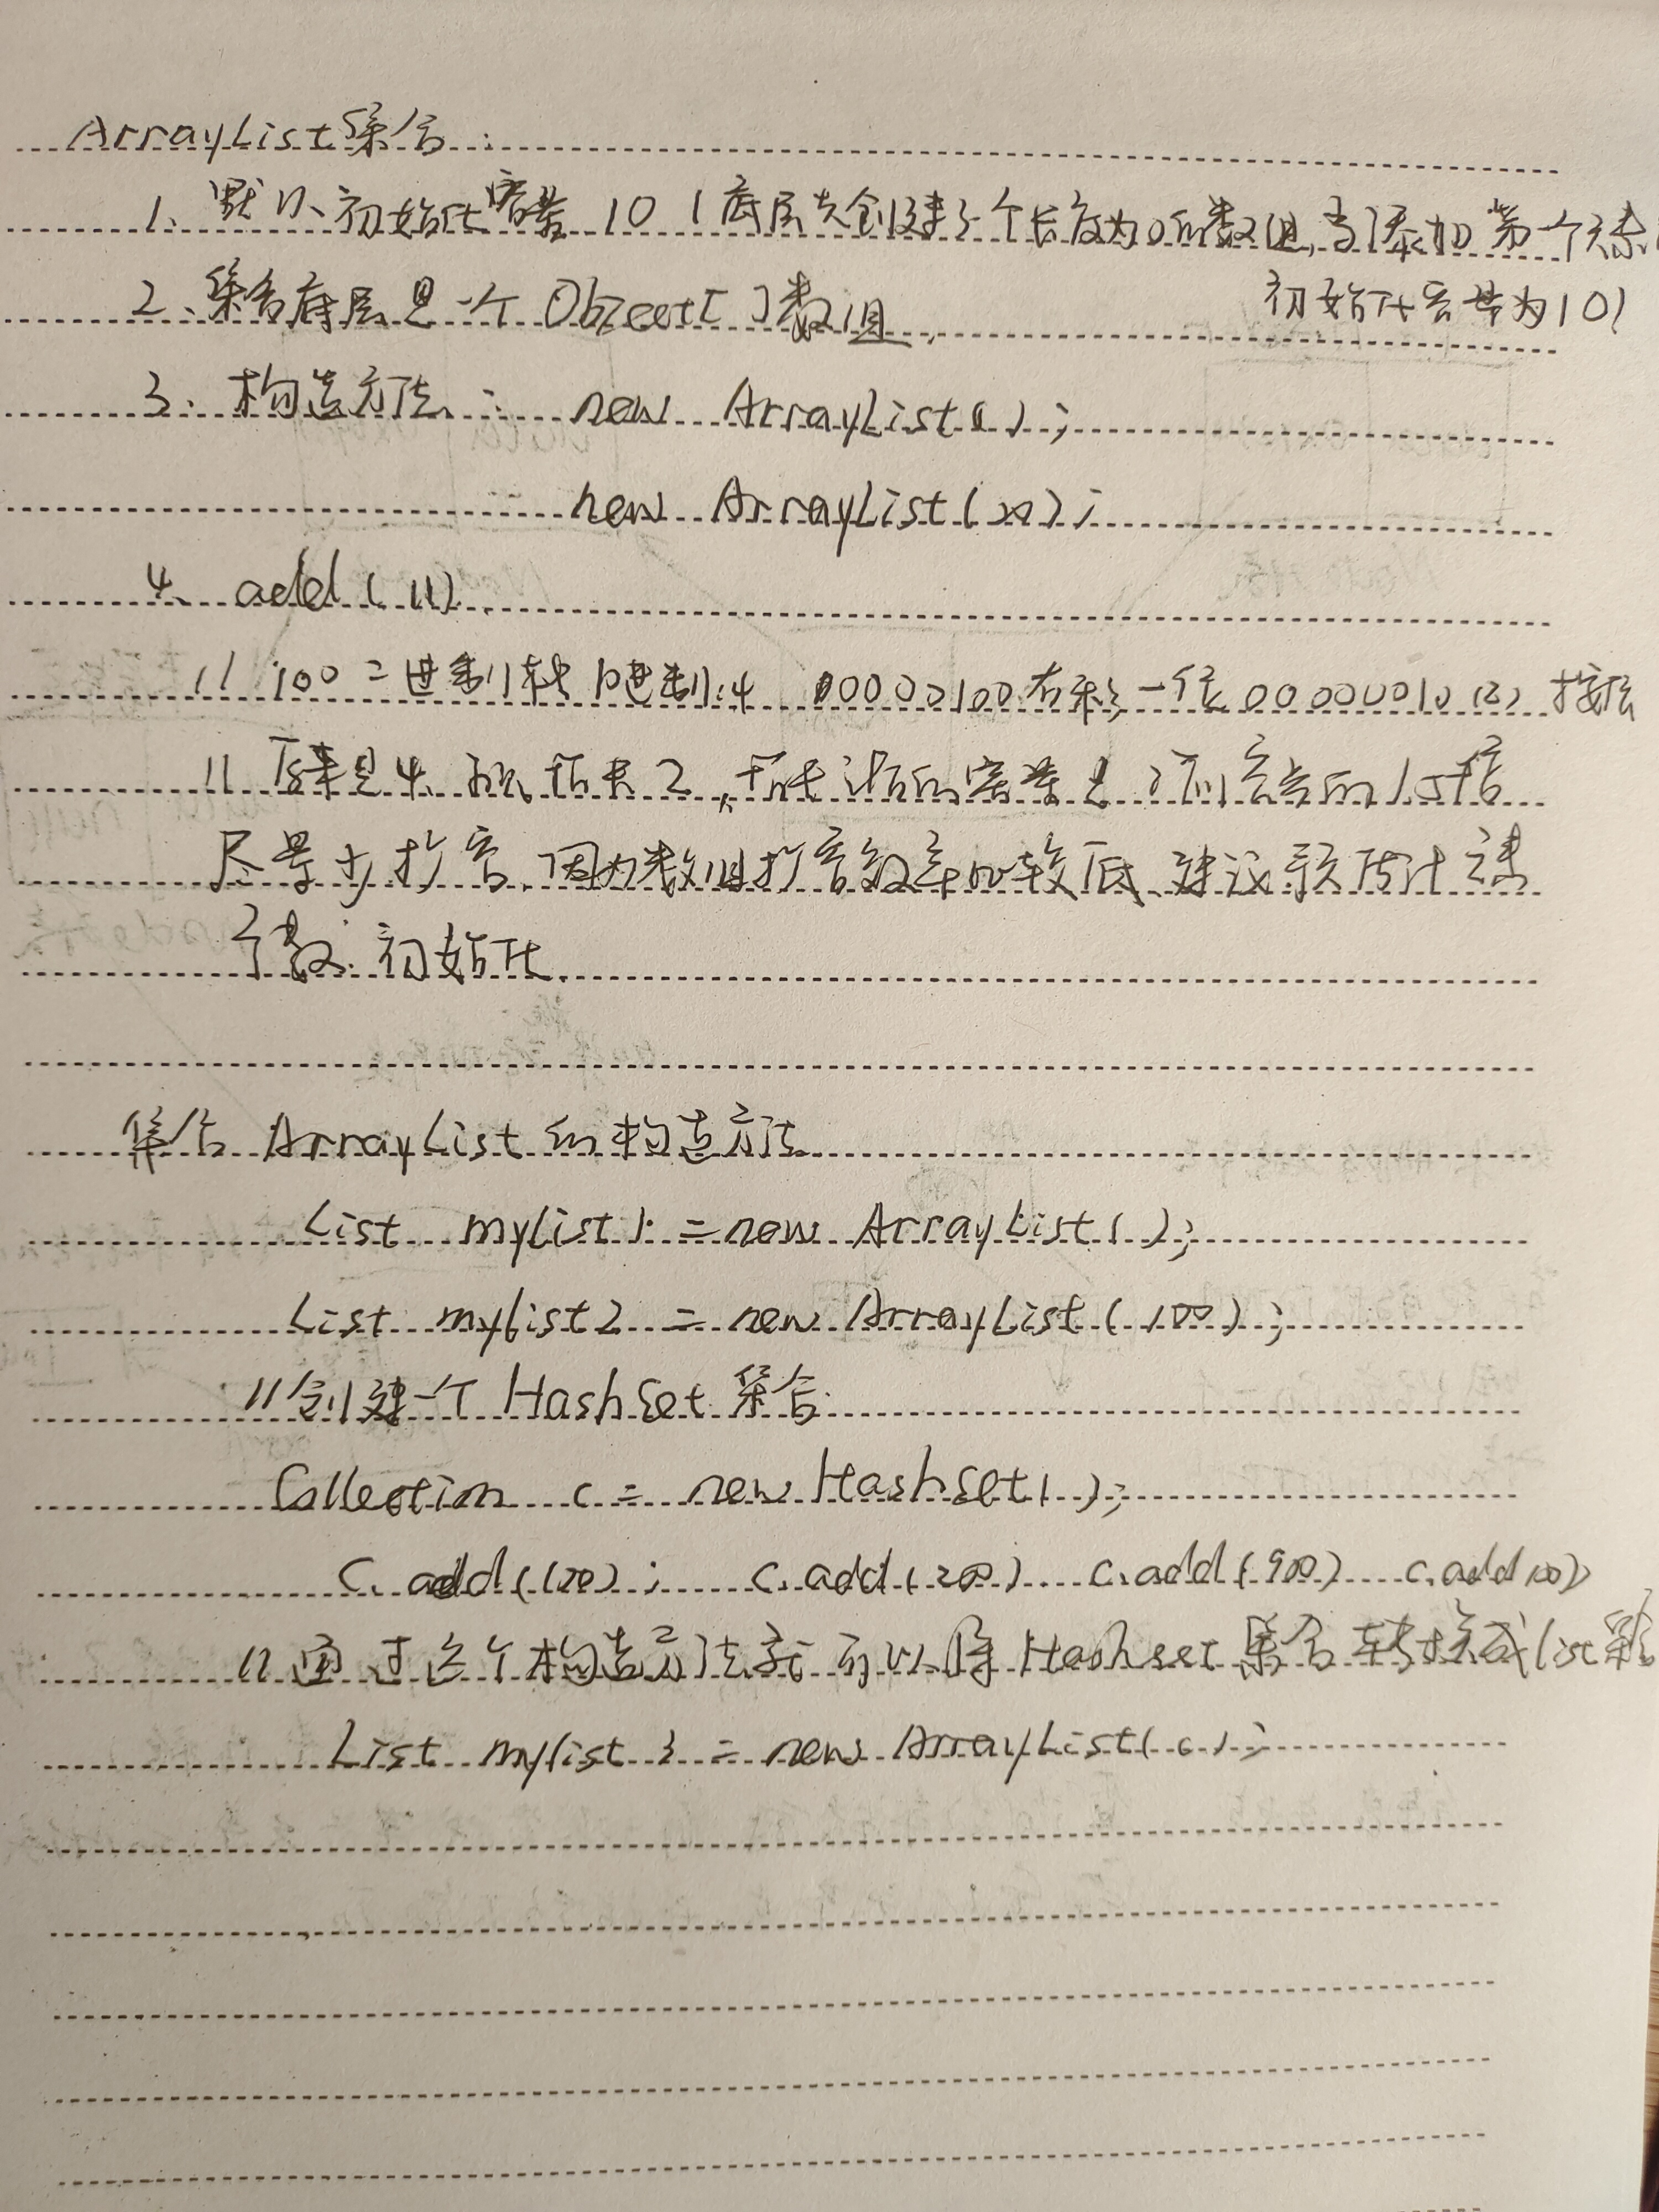 ArrayList集合:
1、默认初始化容量 10 (底层先创建了一个长度为0的数组,当添加第一个元素
初始化容量为10)
2、集合底层是一个Object[]数组.
3、构造方法: new ArrayList();
new ArrayList(20);
4、add(11)
// 100二进制转10进制:4 00000100右移一位 00000010(2)
// 原来是4 现在 2 ,容量是 1.5倍
尽量少扩容,因为数组扩容效率比较低,建议预估计元素
个数.初始化.
集合ArrayList的构造方法
List mylist1 = new ArrayList();
List mylist2 = new ArrayList(100);
//创建一个HashSet集合
Collection c = new HashSet();
c.add(100); c.add(200) c.add(900) c.add
//通过这个构造方法就可以将Hashset集合转换成list集合
List mylist3 = new ArrayList(c);